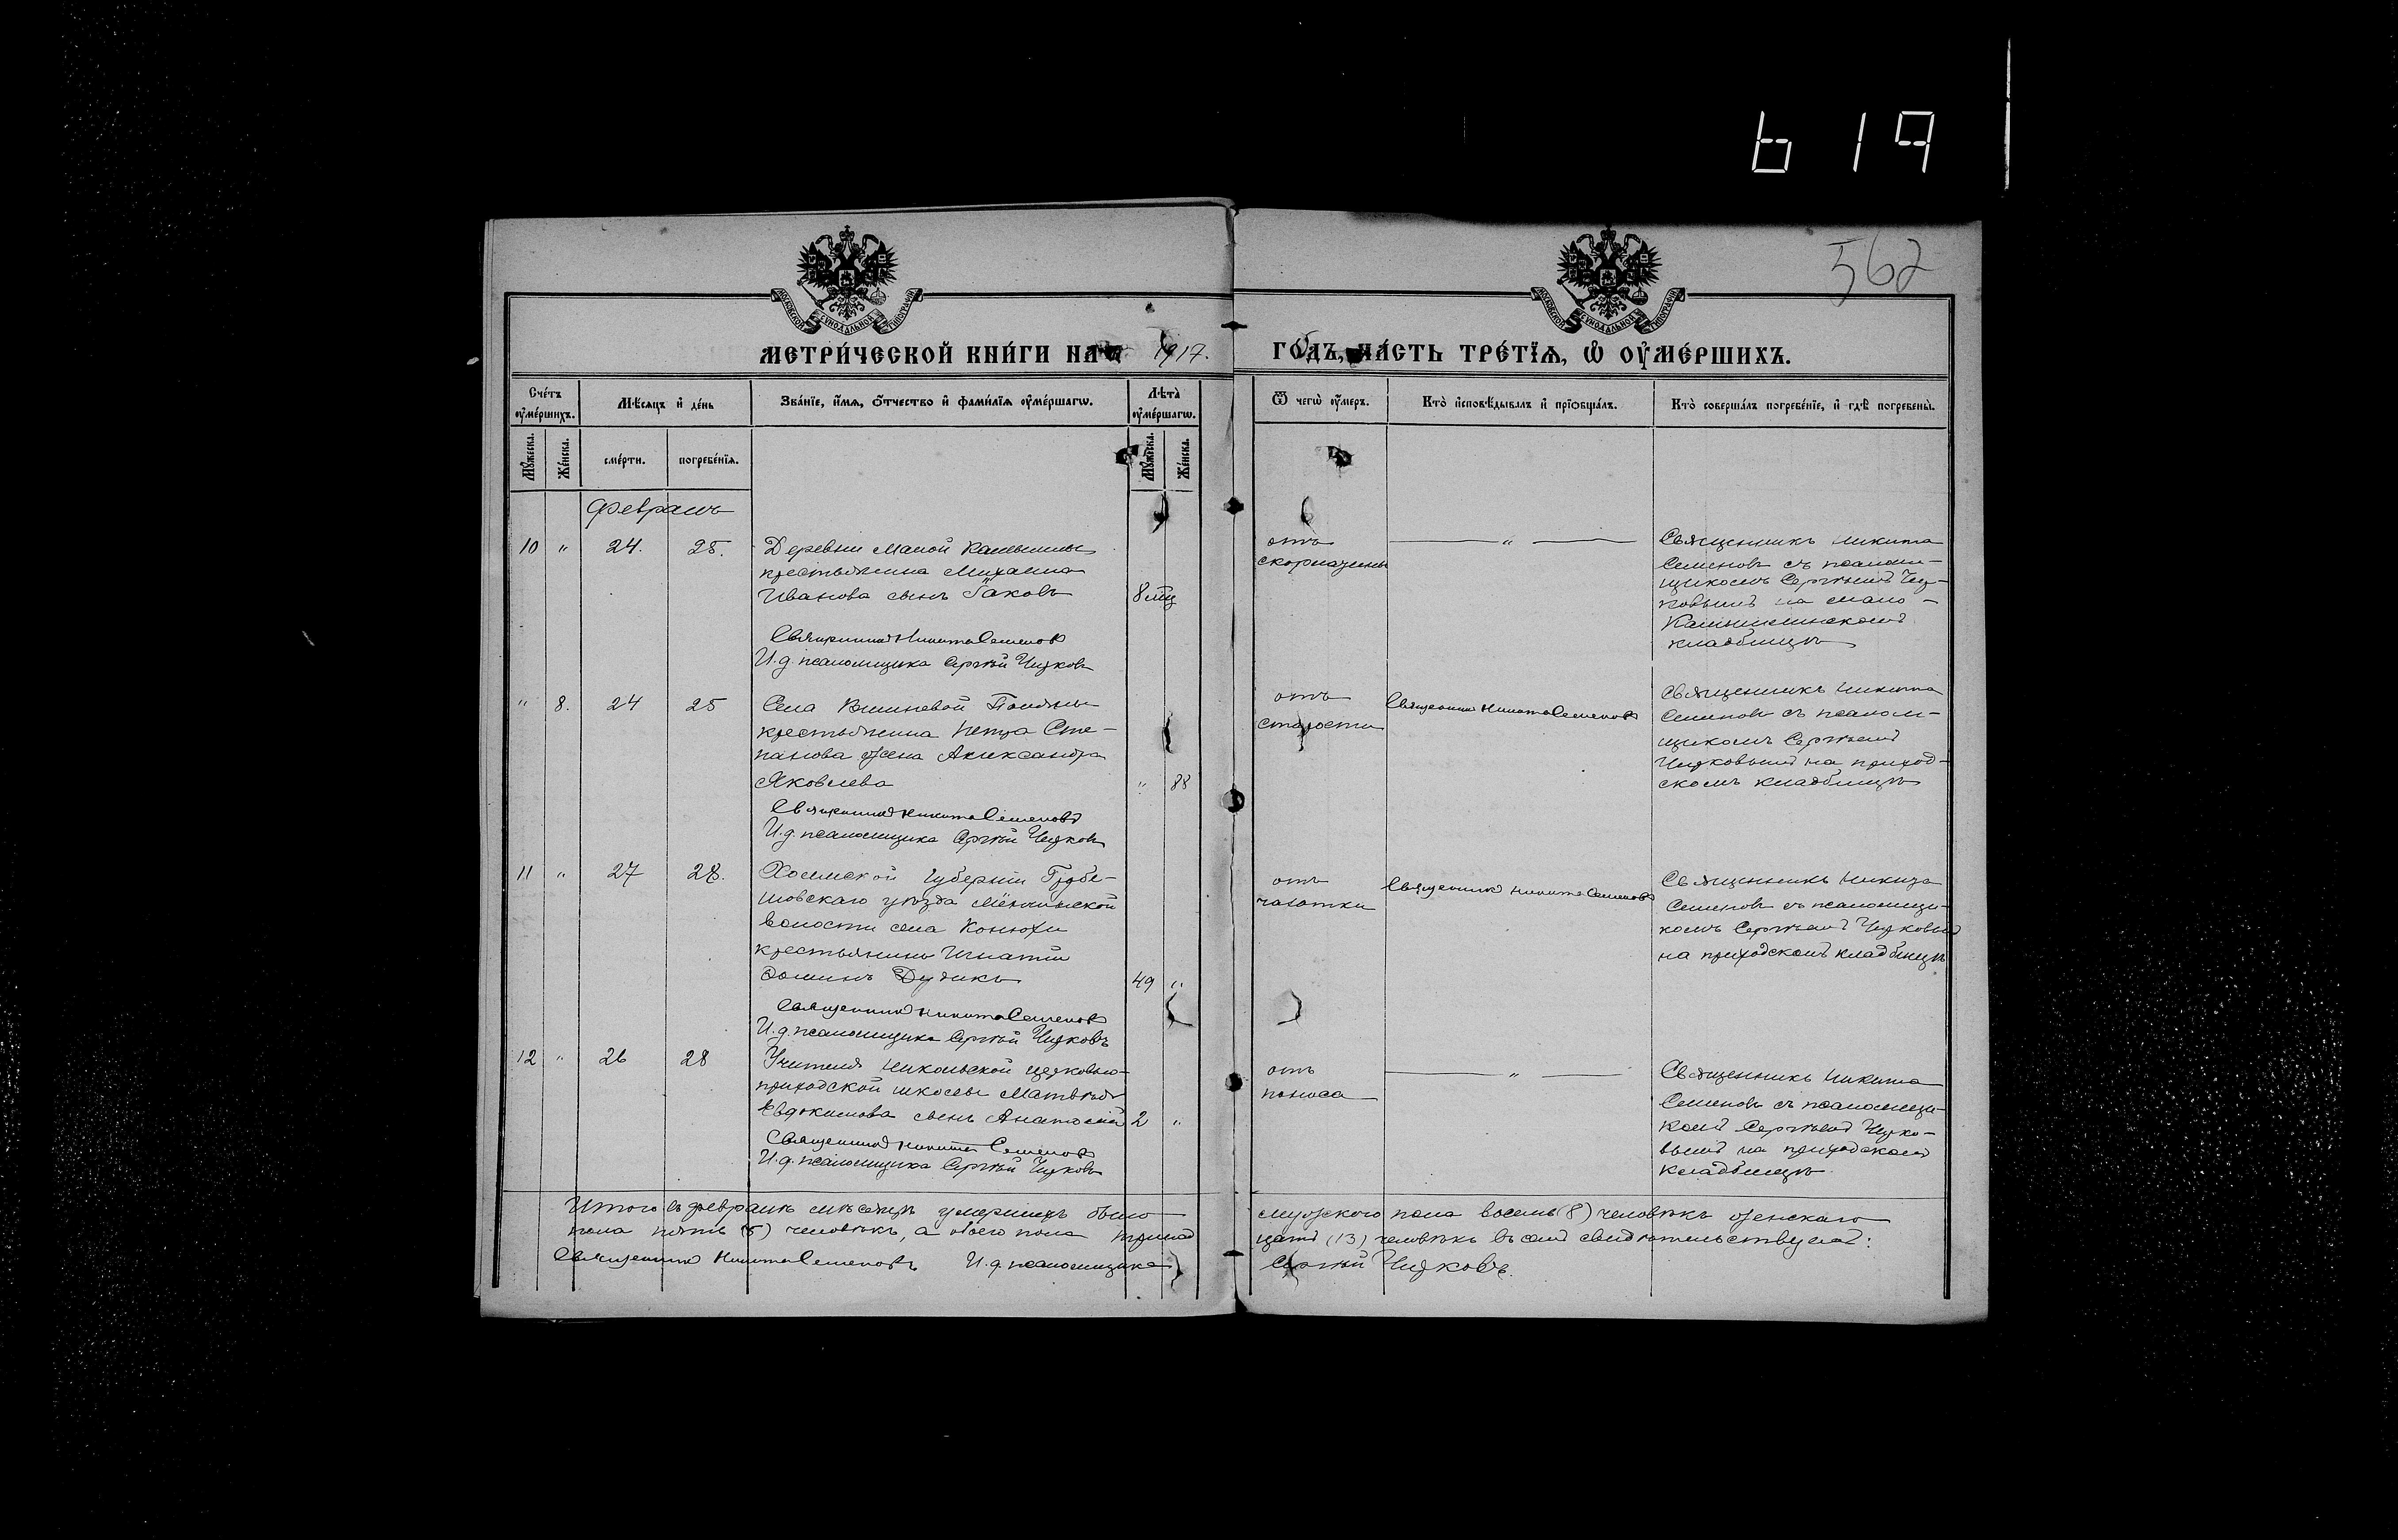 619
562
МОСКОВСКОЙ СѴНОДАЛЬНОЙ ТИПОГРАФІИ
МОСКОВСКОЙ СѴНОДАЛЬНОЙ ТИПОГРАФІИ
МЕТРИ́ЧЕСКОЙ КНИ́ГИ НА 1917. ГО́ДЪ, ЧА́СТЬ ТРЕ́ТЇѦ, Ѡ҆ ОУ҆МЕ́РШИХЪ.
Сче́тъ оу҆ме́ршихъ.
Мѣ́сяцъ и҆ де́нь
Зва́нїе, и҆́мѧ, ѻ҆́тчество и҆ фами́лїѧ оу҆ме́ршагѡ.
Лѣ̀та оу҆ме́ршагѡ.
Ѿ чегѡ̀ оу҆́меръ.
Кто̀ и҆сповѣ́дывалъ и҆ прїѡбща́лъ.
Кто̀ соверша́лъ погребе́нїе, и҆ гдѣ̀ погребены̀.
Мꙋ́жеска.
Же́нска.
сме́рти.
погребе́нїѧ.
Мꙋ́жеска.
Же́нска.
Февраль
10 " 24. 25.
Деревни Малой Камышины
крестьянина Михаила
Иванова сынъ Іаковъ 8 мц
Священникъ Никита Семеновъ
И.д. псаломщика Сергѣй Чирковъ
отъ
скарлатины
"
Священникъ Никита
Семеновъ съ псалом-
щикомъ Сергѣемъ Чир-
ковымъ на мало-
Камышинскомъ
кладбищѣ
" 8. 24 25
Села Вишневой Поляны
крестьянина Петра Сте-
панова жена Александра
Яковлева " 88
Священникъ Никита Семеновъ
И.д. псаломщика Сергѣй Чирковъ
отъ
старости
Священникъ Никита Семеновъ
Священникъ Никита
Семеновъ съ псалом-
щикомъ Сергѣемъ
Чирковымъ на приход-
скомъ кладбищѣ
11 " 27 28.
Холмской губерніи Грубе-
шовскаго уѣзда
волости села Конюхи
крестьянинъ Игнатій
Дудикъ 49 "
Священникъ Никита Семеновъ
И.д. псаломщика Сергѣй Чирковъ
отъ
чахотки
Священникъ Никита Семеновъ
Священникъ Никита
Семеновъ съ псаломщи-
комъ Сергѣемъ Чирковымъ
на приходскомъ кладбищѣ
12 " 26 28
Учителя Никольской церковно-
приходской школы Матвѣя
Евдокимова сынъ Анатолій 2 "
Священникъ Никита Семеновъ
И.д. псаломщика Сергѣй Чирковъ
отъ
поноса
"
Священникъ Никита
Семеновъ съ псаломщи-
комъ Сергѣемъ Чирко-
вымъ на приходскомъ
кладбищѣ
Итого въ февралѣ мѣсяцѣ умершихъ было мужского пола восемь (8) человѣкъ женскаго
пола пять (5) человѣкъ, а обоего пола тринад цать (13) человѣкъ въ семъ свидѣтельствуемъ:
Священникъ Никита Семеновъ И.д. псаломщика Сергѣй Чирковъ.